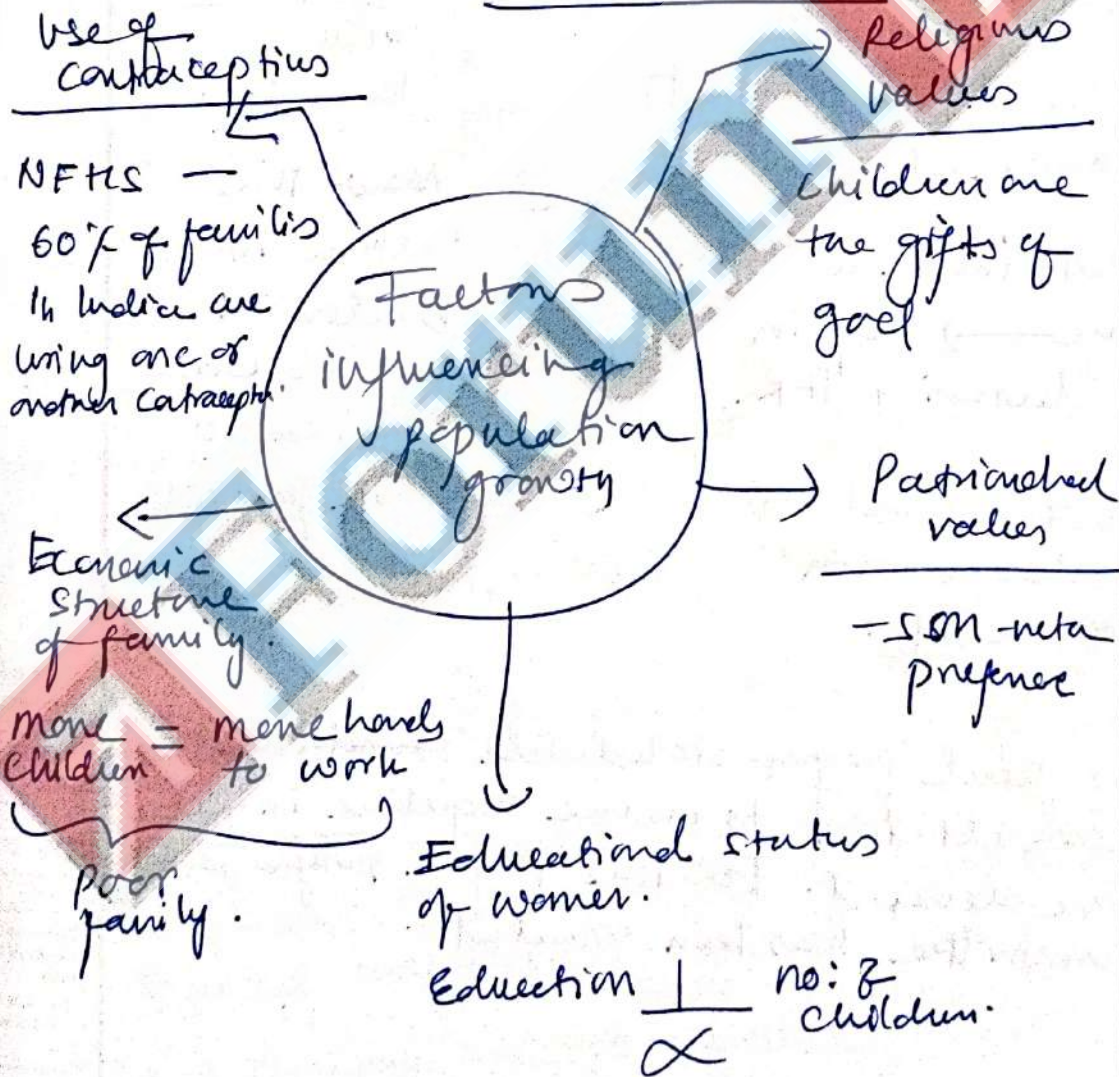 Use of
contraceptives
NFHS —
60% of families
in India are
using one or
another contraceptn.
Religious
values
children are
the gifts of
god
Factors
influencing
population
growth
Patriarchal
values
- son-meta
preference
Economic
structure
of family.
more = more hands
children to work
poor
family.
Educational status
of women.
Education 1/∝ no: of
children.
Forum